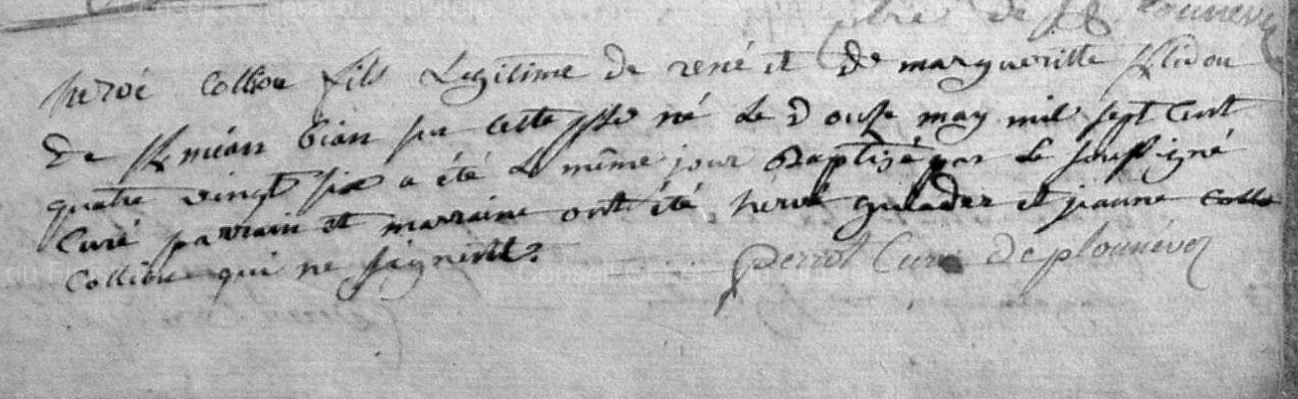 de
hervé Colliou fils Legitime de rené et de margueritte
De bian sur cette né Le Douse may mil sept Cent
quatre vingt six a été Le même jour Baptizé par Le sousigné
Curé parrain et marraine ont été hervé et jeanne
Colliou qui ne signent.
perrot Curé De plounévez